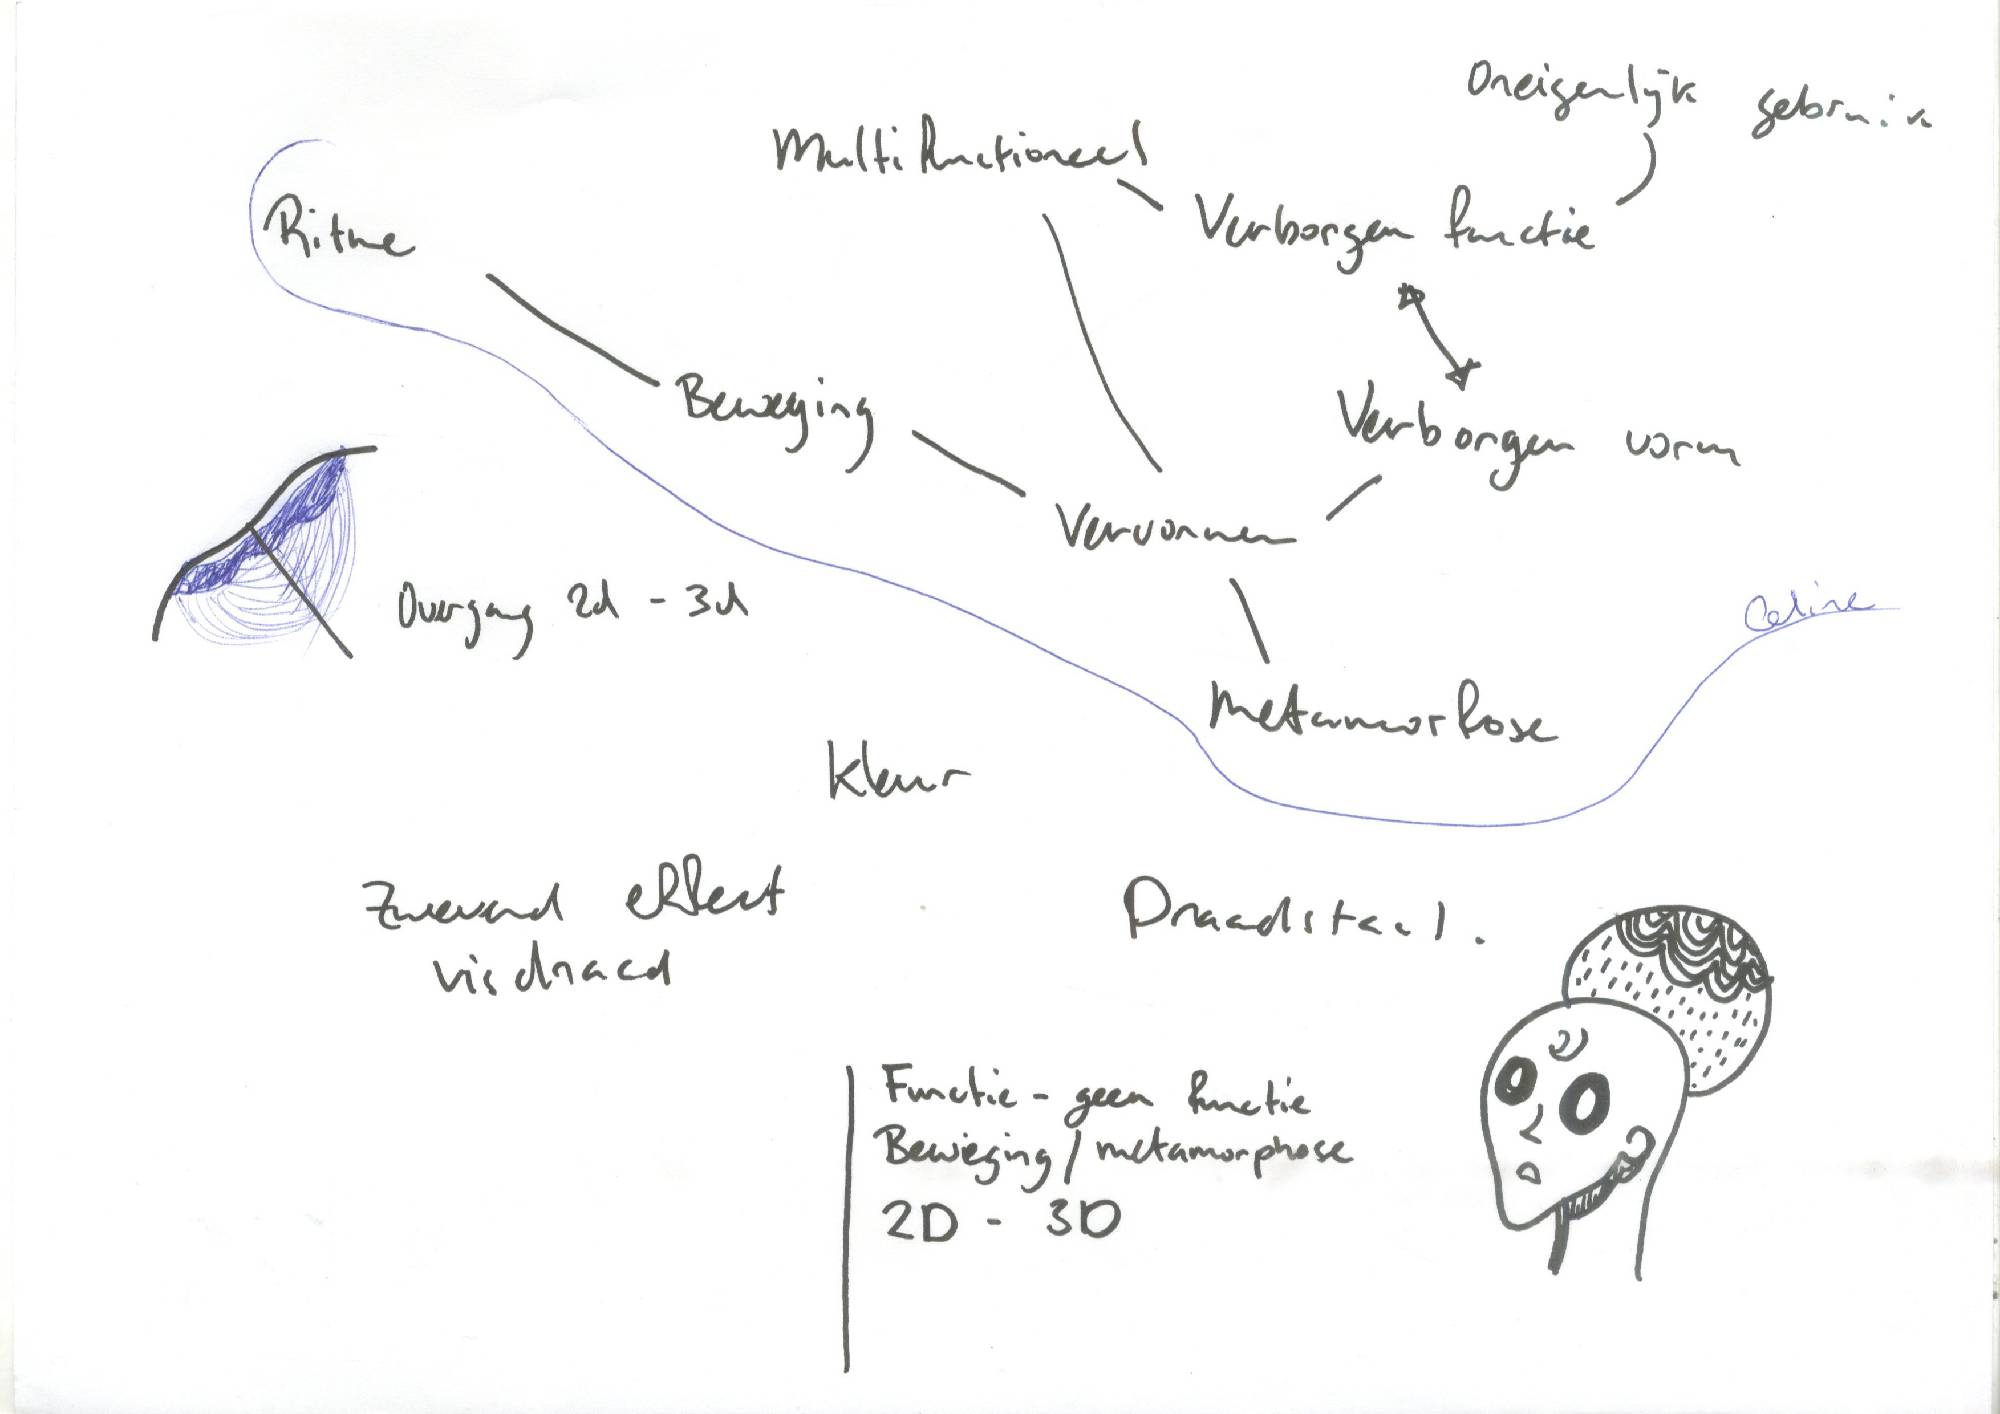 Oneigenlijk gebruik
Multifunctioneel
Verborgen functie
Ritme
Beweging
Verborgen vorm
Vervormen
Overgang 2d - 3d
Celine
Metamorfose
Kleur
Zwevend effect
visdraad
Draadstaal.
Functie - geen functie
Beweging / metamorphose
2D - 3D